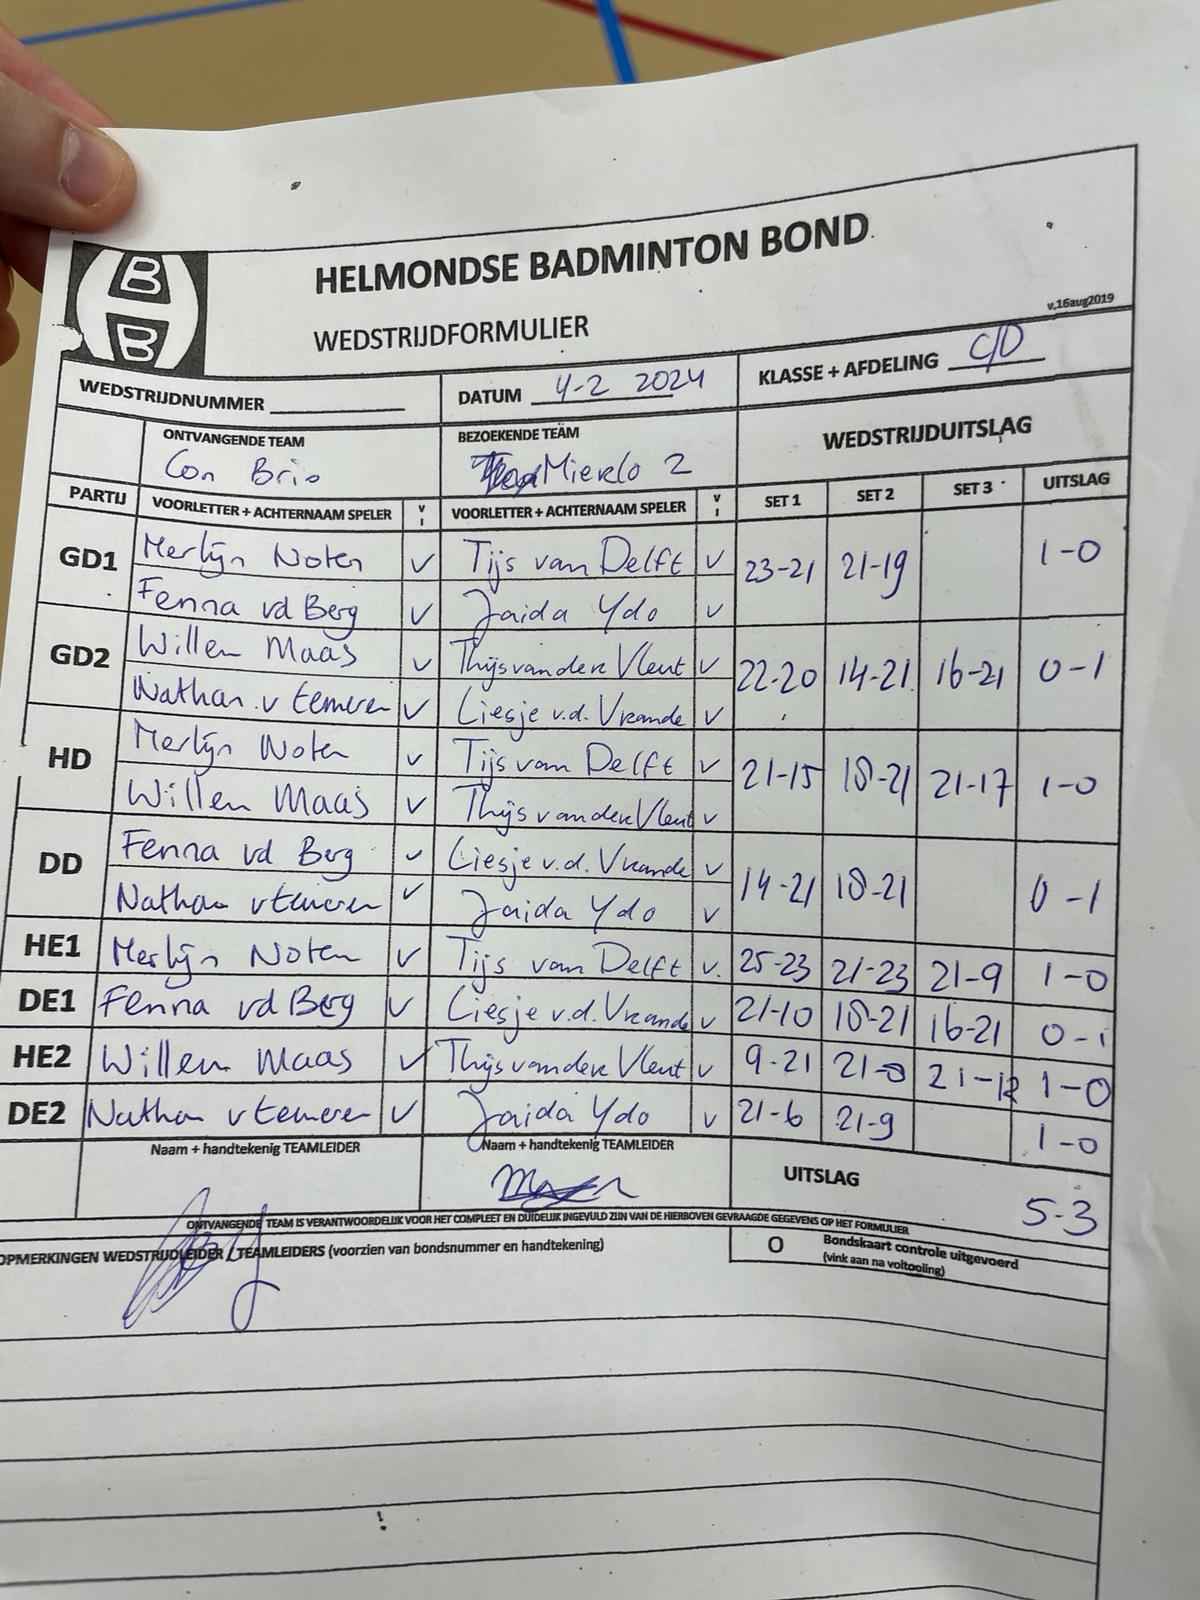 B
B
HELMONDSE BADMINTON BOND
WEDSTRIJDFORMULIER
v.16aug2019
WEDSTRIJDNUMMER
DATUM 4-2 2024
KLASSE + AFDELING C/D
ONTVANGENDE TEAM
Con Brio
BEZOEKENDE TEAM
Mierlo 2
WEDSTRIJDUITSLAG
PARTIJ VOORLETTER + ACHTERNAAM SPELER V I VOORLETTER + ACHTERNAAM SPELER V I SET 1 SET 2 SET 3 UITSLAG
GD1 Merlijn Noten v Tijs van Delft v 23-21 21-19 1-0
Fenna vd Berg v Jaida Ydo v
GD2 Willem Maas v Thijs van der Vleut v 22-20 14-21 16-21 0-1
Nathan v v Liesje v.d. Vrande v
HD Merlijn Noten v Tijs van Delft v 21-15 18-21 21-17 1-0
Willem Maas v Thijs van der Vleut v
DD Fenna vd Berg v Liesje v.d. Vrande v 14-21 18-21 0-1
Nathan v v Jaida Ydo v
HE1 Merlijn Noten v Tijs van Delft v. 25-23 21-23 21-9 1-0
DE1 Fenna vd Berg v Liesje v.d. Vrande v 21-10 18-21 16-21 0-1
HE2 Willem Maas v Thijs van der Vleut v 9-21 1-0
DE2 Nathan v v Jaida Ydo v 21-6 21-9 1-0
Naam + handtekenig TEAMLEIDER
Naam + handtekenig TEAMLEIDER
UITSLAG 5-3
ONTVANGENDE TEAM IS VERANTWOORDELIJK VOOR HET COMPLEET EN DUIDELIJK INGEVULD ZIJN VAN DE HIERBOVEN GEVRAAGDE GEGEVENS OP HET FORMULIER
OPMERKINGEN WEDSTRIJDLEIDER / TEAMLEIDERS (voorzien van bondsnummer en handtekening)
O Bondskaart controle uitgevoerd
(vink aan na voltooiing)